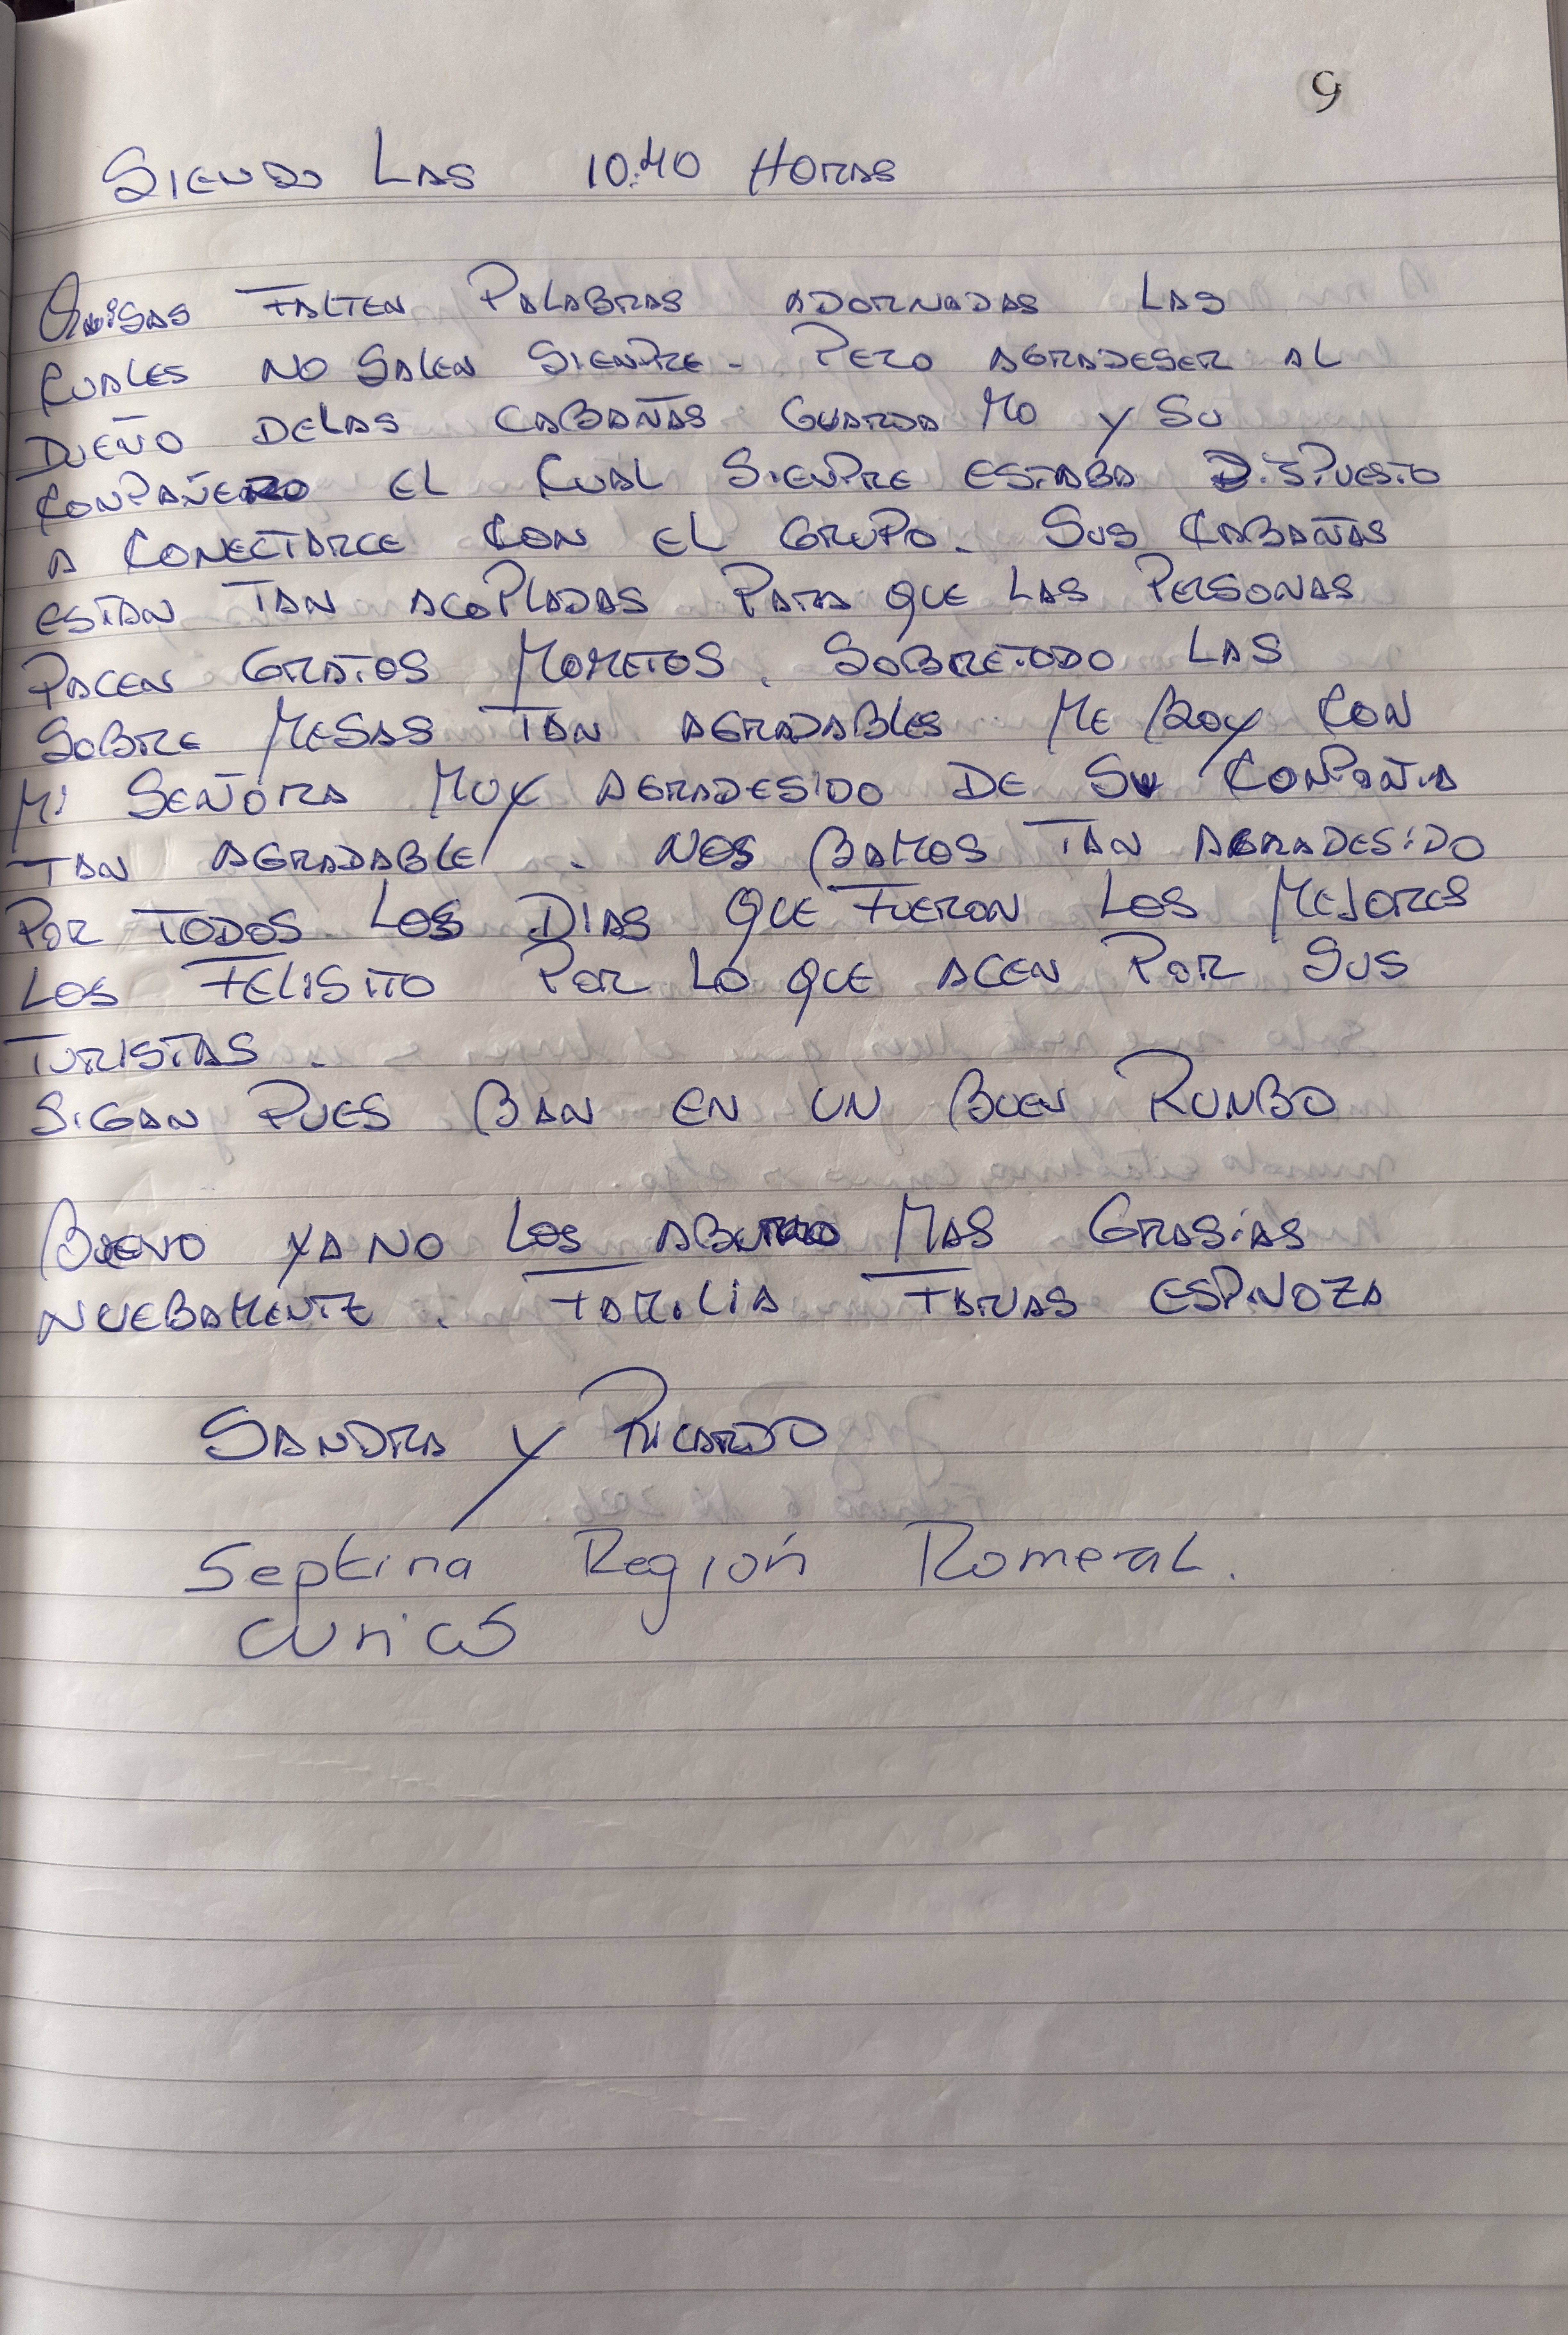 9
SIENDO LAS 10:40 HORAS
QUISAS FALTEN PALABRAS ADORNADAS LAS
CUALES NO SALEN SIENPRE. PERO AGRADESER AL
DUEÑO DELAS CABAÑAS GUARDA MO Y SU
CONPAÑERO EL CUAL SIENPRE ESTABA DISPUESTO
A CONECTARCE CON EL GRUPO. SUS CABAÑAS
ESTAN TAN ACOPLADAS PARA QUE LAS PERSONAS
PACEN GRATOS MOMETOS. SOBRETODO LAS
SOBRE MESAS TAN AGRADABLES ME BOY CON
MI SEÑORA MUY AGRADESIDO DE SU CONPAÑIA
TAN AGRADABLE. NOS BAMOS TAN AGRADESIDO
POR TODOS LOS DIAS QUE FUERON LOS MEJORES
LOS FELISITO POR LO QUE ACEN POR SUS
TURISTAS.
SIGAN PUES BAN EN UN BUEN RUNBO
BUENO YA NO LOS ABURRO MAS GRASIAS
NUEBAMENTE. FAMILIA ESPINOZA
SANDRA Y RICARDO
Septima Región Romeral.
Curicó